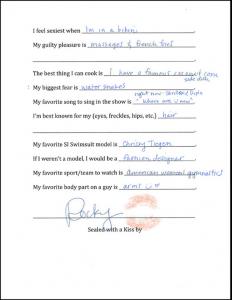 I feel sexiest when I'm in a bikini.
My guilty pleasure is massages & french fries
The best thing I can cook is I have a famous coconut corn
My biggest fear is water snakes
right now
My favorite song to sing in the show is "Where are ü now"
I'm best known for my (eyes, freckles, hips, etc.) hair
My favorite SI Swimsuit model is Chrissy Tiegen
If I weren't a model, I would be a fashion designer
My favorite sport/team to watch is American women's gymnastics
My favorite body part on a guy is arms
Rocky
Sealed with a Kiss by